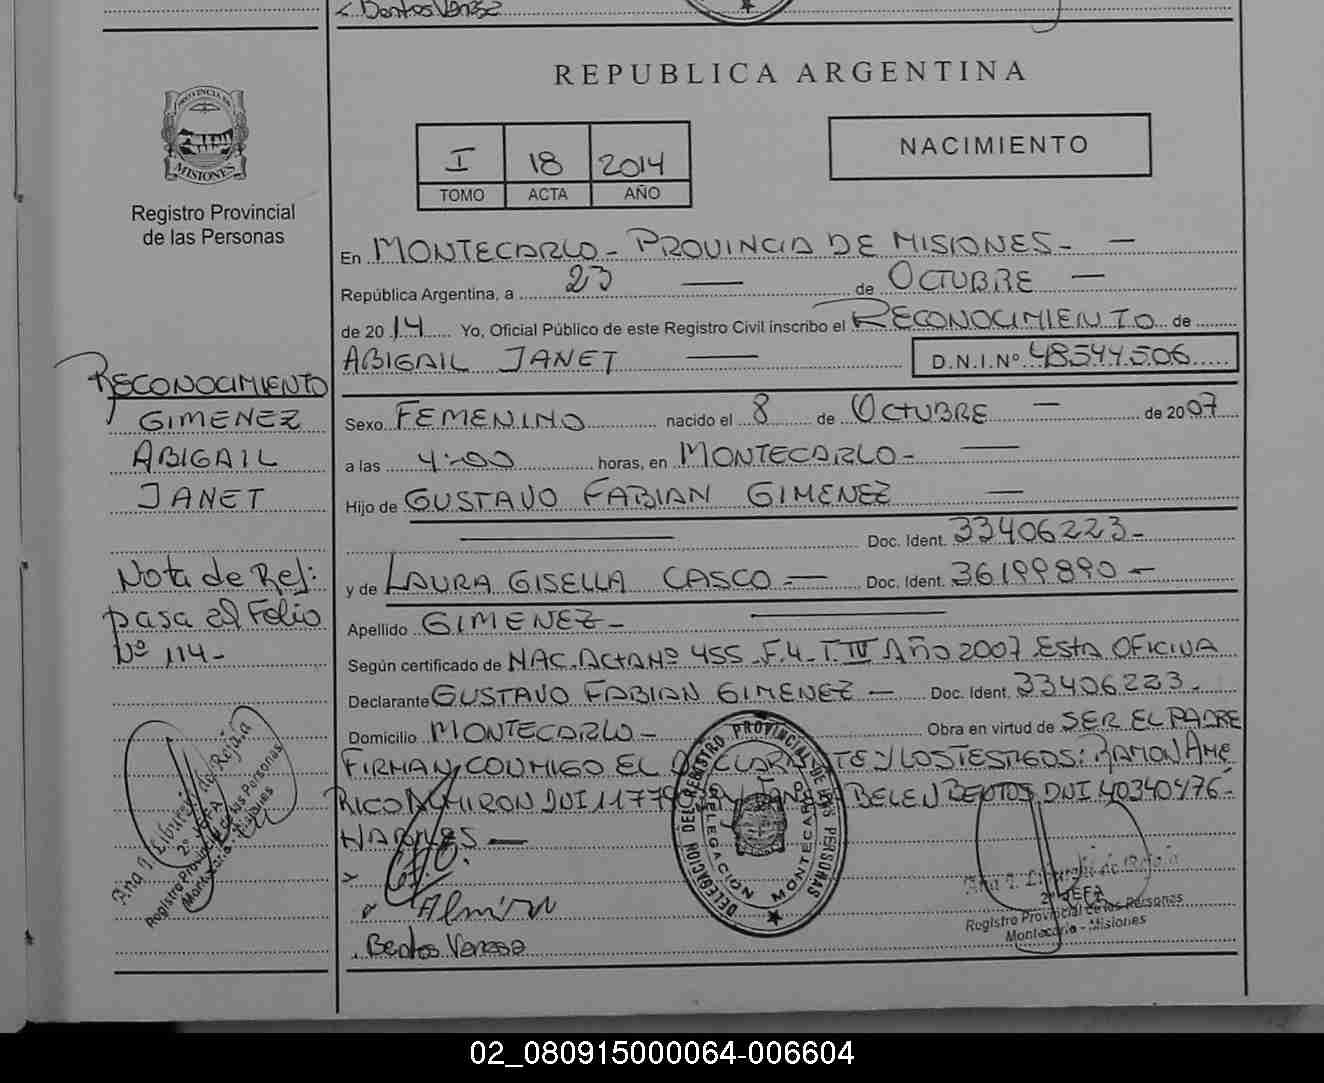 PROVINCIA DE
MISIONES
Registro Provincial
de las Personas
REPUBLICA ARGENTINA
I 18 2014
TOMO ACTA AÑO
NACIMIENTO
En MONTECARLO - PROVINCIA DE MISIONES -
República Argentina, a 23 de OCTUBRE
de 2014 Yo, Oficial Público de este Registro Civil inscribo el RECONOCIMIENTO de
ABIGAIL JANET D.N.I.Nº 48544506
Sexo FEMENINO nacido el 8 de OCTUBRE de 2007
a las 4:00 horas, en MONTECARLO -
Hijo de GUSTAVO FABIAN GIMENEZ
Doc. Ident. 33406223 -
y de LAURA GISELLA CASCO Doc. Ident. 36199890 -
Apellido GIMENEZ -
Según certificado de NAC. ACTA Nº 455 - F. 4 - T. IV AÑO 2007 ESTA OFICINA
Declarante GUSTAVO FABIAN GIMENEZ - Doc. Ident. 33406223 -
Domicilio MONTECARLO - Obra en virtud de SER EL PADRE
FIRMAN CONMIGO EL DECLARANTE Y LOS TESTIGOS: RAMON AME
RICO ALMIRON DNI BELEN BENTOS DNI 40340476 -
Almiron
Bentos Vanesa
RECONOCIMIENTO
GIMENEZ
ABIGAIL
JANET
Nota de Ref:
pasa al Folio
Nº 114 -
2º JEFA
Registro Provincial de las Personas
Montecarlo - Misiones
DELEGACION DEL REGISTRO PROVINCIAL DE LAS PERSONAS
DELEGACIÓN MONTECARLO
2º JEFA
Registro Provincial de las Personas
Montecarlo - Misiones
02_080915000064-006604